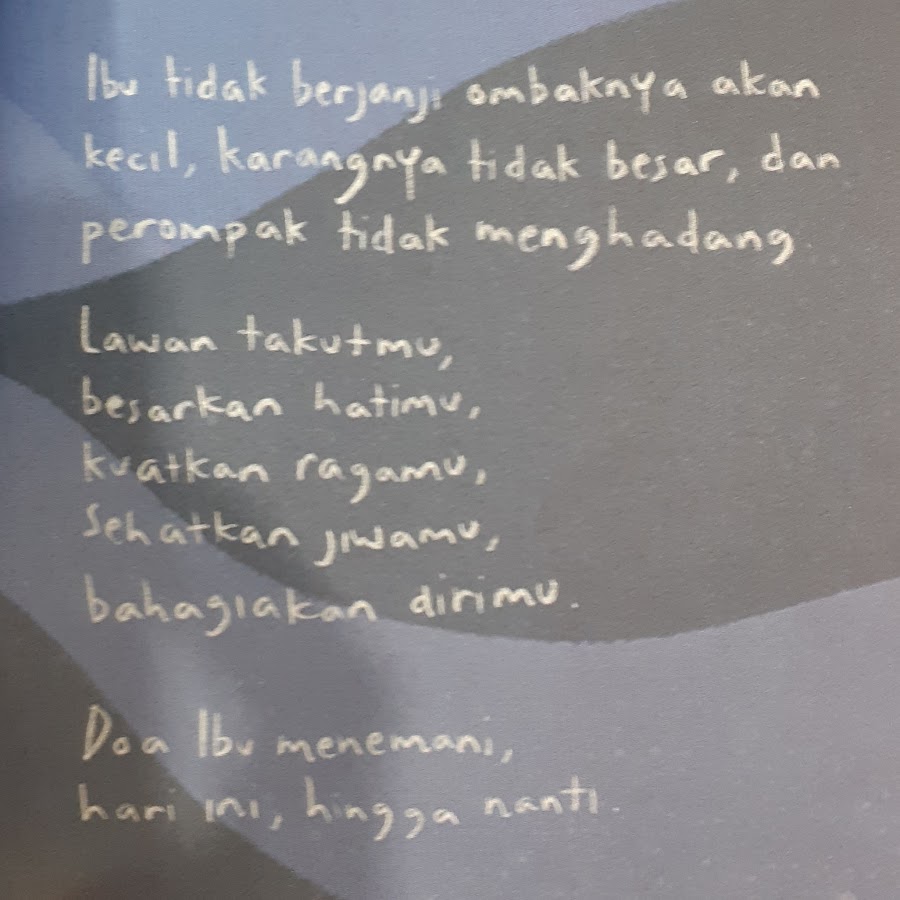 Ibu tidak berjanji ombaknya akan
kecil, karangnya tidak besar, dan
perompak tidak menghadang.
Lawan takutmu,
besarkan hatimu,
kuatkan ragamu,
Sehatkan jiwamu,
bahagiakan dirimu.
Doa Ibu menemani,
hari ini, hingga nanti.